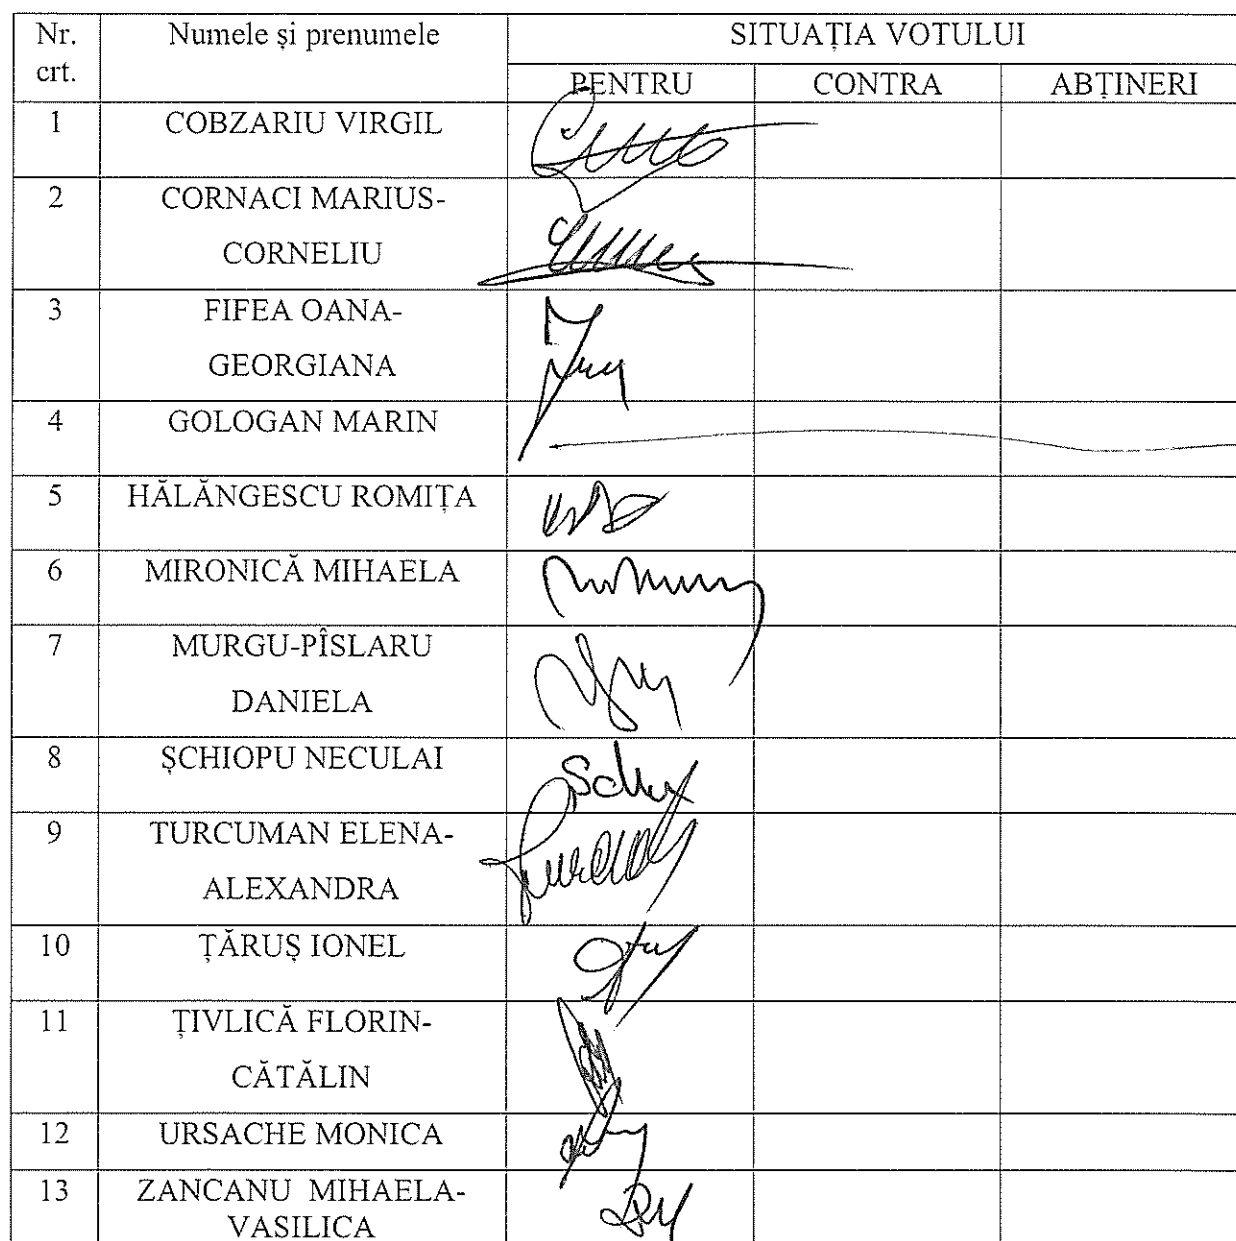 Nr. crt.
Numele și prenumele
SITUAȚIA VOTULUI
PENTRU
CONTRA
ABȚINERI
1
COBZARIU VIRGIL
2
CORNACI MARIUS-
CORNELIU
3
FIFEA OANA-
GEORGIANA
4
GOLOGAN MARIN
5
HĂLĂNGESCU ROMIȚA
6
MIRONICĂ MIHAELA
7
MURGU-PÎSLARU
DANIELA
8
ȘCHIOPU NECULAI
9
TURCUMAN ELENA-
ALEXANDRA
10
ȚĂRUȘ IONEL
11
ȚIVLICĂ FLORIN-
CĂTĂLIN
12
URSACHE MONICA
13
ZANCANU MIHAELA-
VASILICA